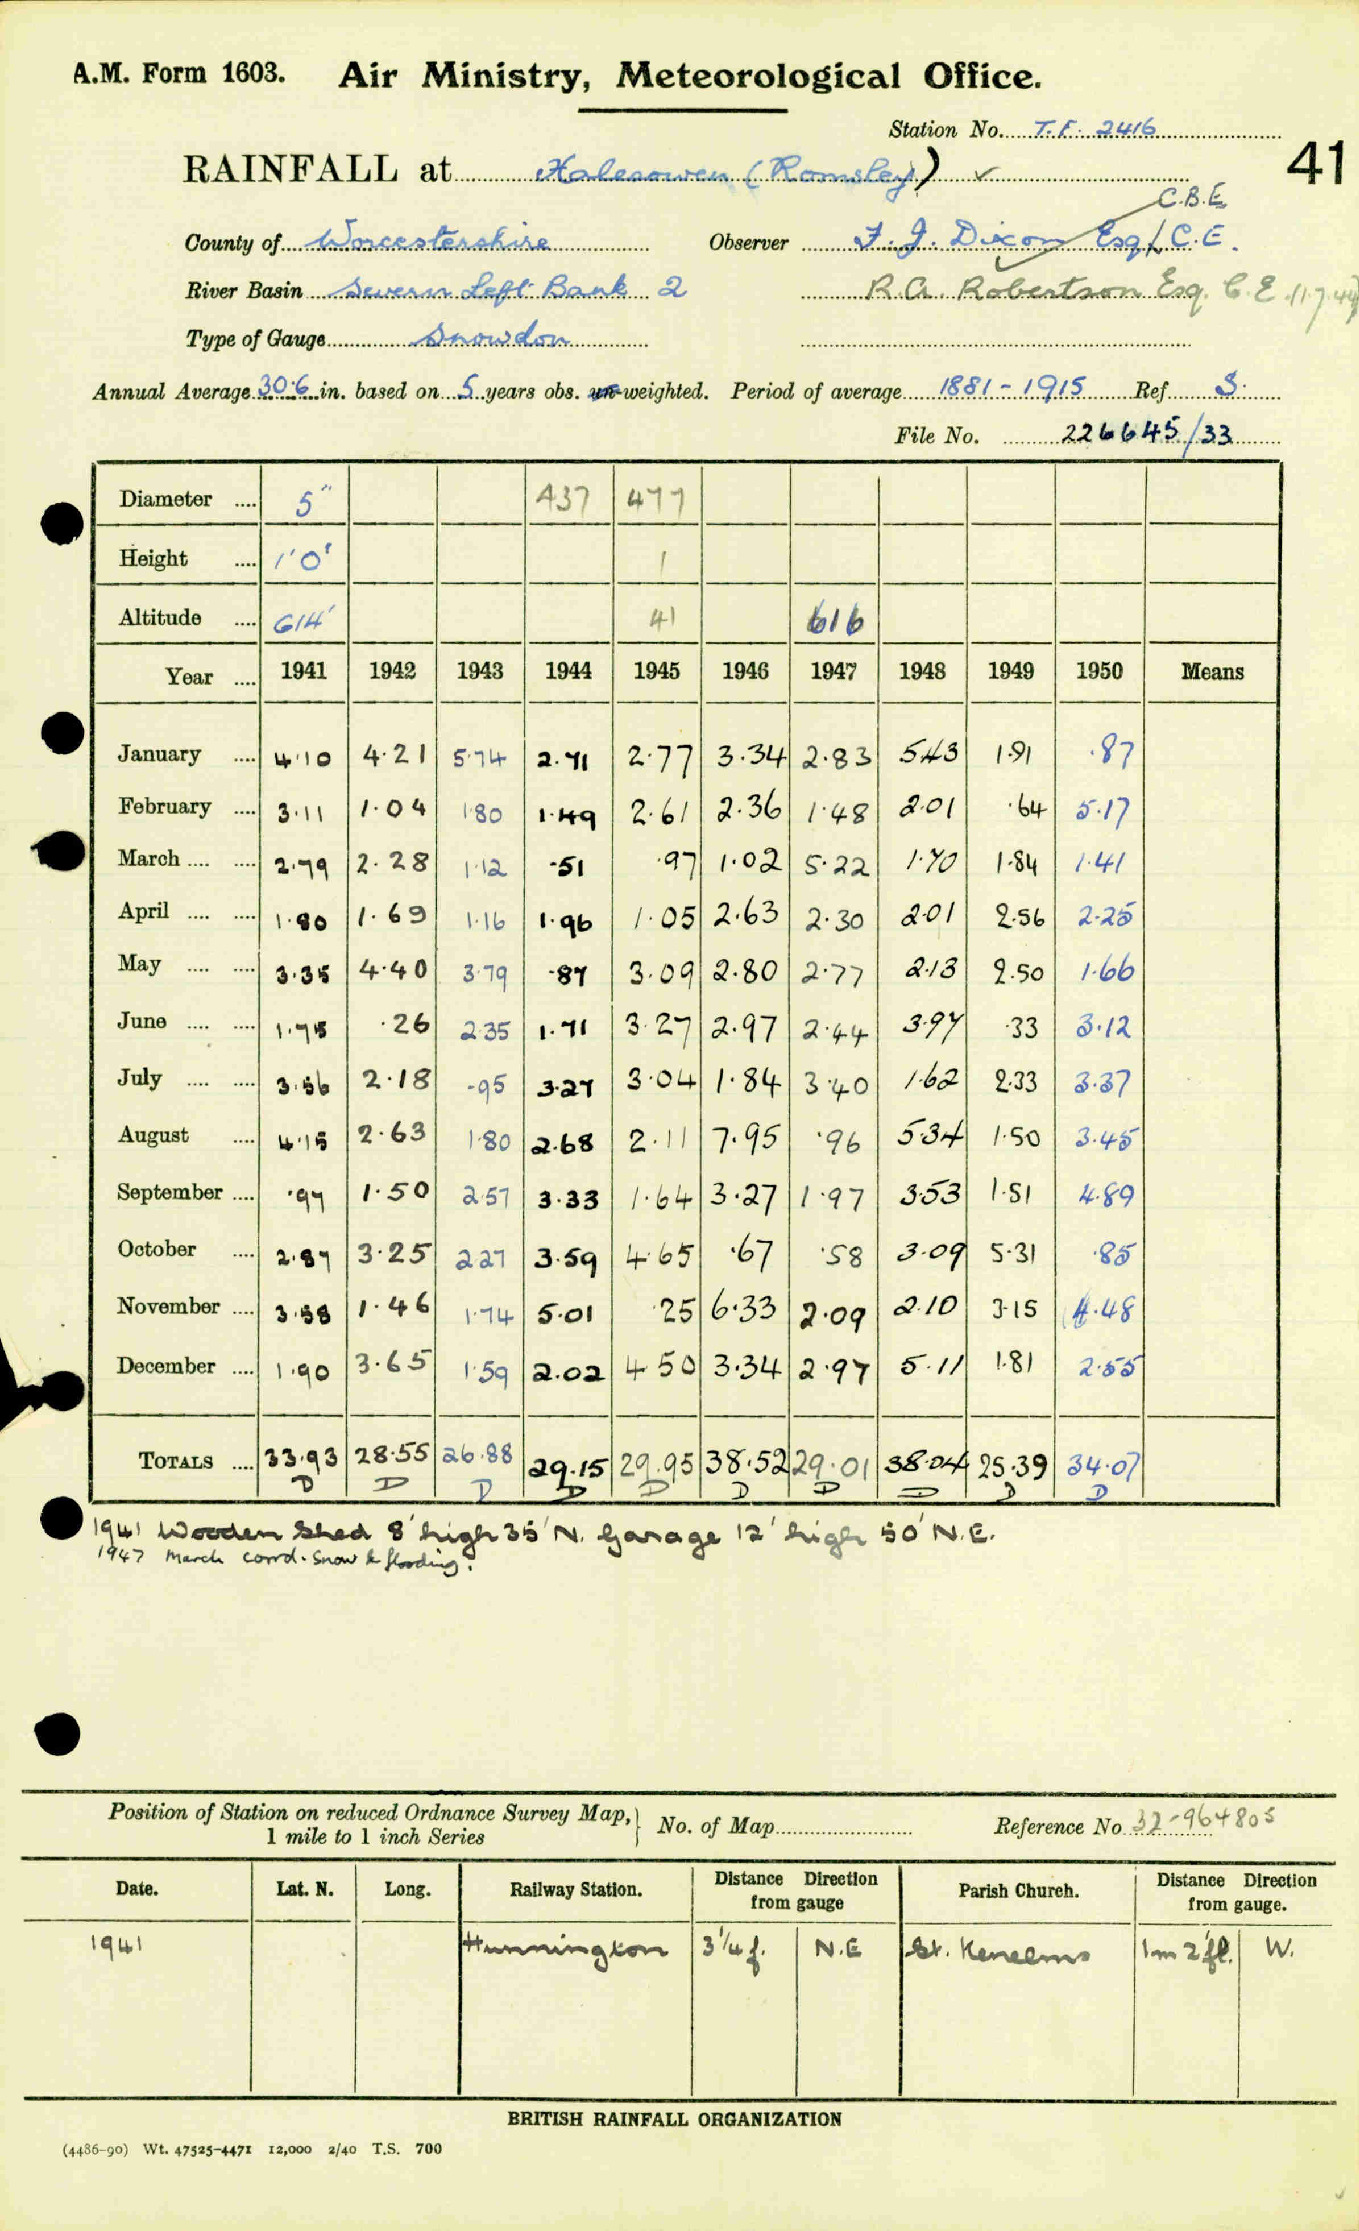 A.M. Form 1603. Air Ministry, Meteorological Office.
Station No. T.F. 2416
41
RAINFALL at Halesowen (Romsley) ✓
C.B.E
County of Worcestershire Observer F. J. Dixon Esq C.E.
River Basin Severn Left Bank 2 R.A. Robertson Esq. C.E. 11.7.49
Type of Gauge Snowdon
Annual Average 30.6 in. based on 5 years obs. un-weighted. Period of average 1881-1915 Ref S.
File No. 226645/33
Diameter .... 5" 437 477
Height .... 1'0" 1
Altitude .... 614' 41 616
Year .... 1941 1942 1943 1944 1945 1946 1947 1948 1949 1950 Means
January .... 4.10 4.21 5.74 2.71 2.77 3.34 2.83 5.43 1.91 .87
February .... 3.11 1.04 1.80 1.49 2.61 2.36 1.48 2.01 .64 5.17
March .... .... 2.79 2.28 1.12 .51 .97 1.02 5.22 1.70 1.84 1.41
April .... .... 1.80 1.69 1.16 1.96 1.05 2.63 2.30 2.01 2.56 2.25
May .... .... 3.35 4.40 3.79 .87 3.09 2.80 2.77 2.13 2.50 1.66
June .... .... 1.75 .26 2.35 1.71 3.27 2.97 2.44 3.97 .33 3.12
July .... .... 3.56 2.18 .95 3.27 3.04 1.84 3.40 1.62 2.33 3.37
August .... 4.15 2.63 1.80 2.68 2.11 7.95 .96 5.34 1.50 3.45
September .... .97 1.50 2.57 3.33 1.64 3.27 1.97 3.53 1.51 4.89
October .... 2.87 3.25 2.27 3.59 4.65 .67 .58 3.09 5.31 .85
November .... 3.58 1.46 1.74 5.01 .25 6.33 2.09 2.10 3.15 4.48
December .... 1.90 3.65 1.59 2.02 4.50 3.34 2.97 5.11 1.81 2.55
TOTALS .... 33.93 28.55 26.88 29.15 29.95 38.52 29.01 38.04 25.39 34.07
D D D D D D D D D D
1941 Wooden Shed 8' high 35' N. Garage 12' high 50' N.E.
1947 March corrd. Snow & flooding.
Position of Station on reduced Ordnance Survey Map, 1 mile to 1 inch Series } No. of Map Reference No 32-964805
Date. Lat. N. Long. Railway Station. Distance Direction from gauge Parish Church. Distance Direction from gauge.
1941 Hunnington 3¼ f. N.E St. Kenelms 1m 2fl. W.
BRITISH RAINFALL ORGANIZATION
(4486-90) Wt. 47525-4471 12,000 2/40 T.S. 700